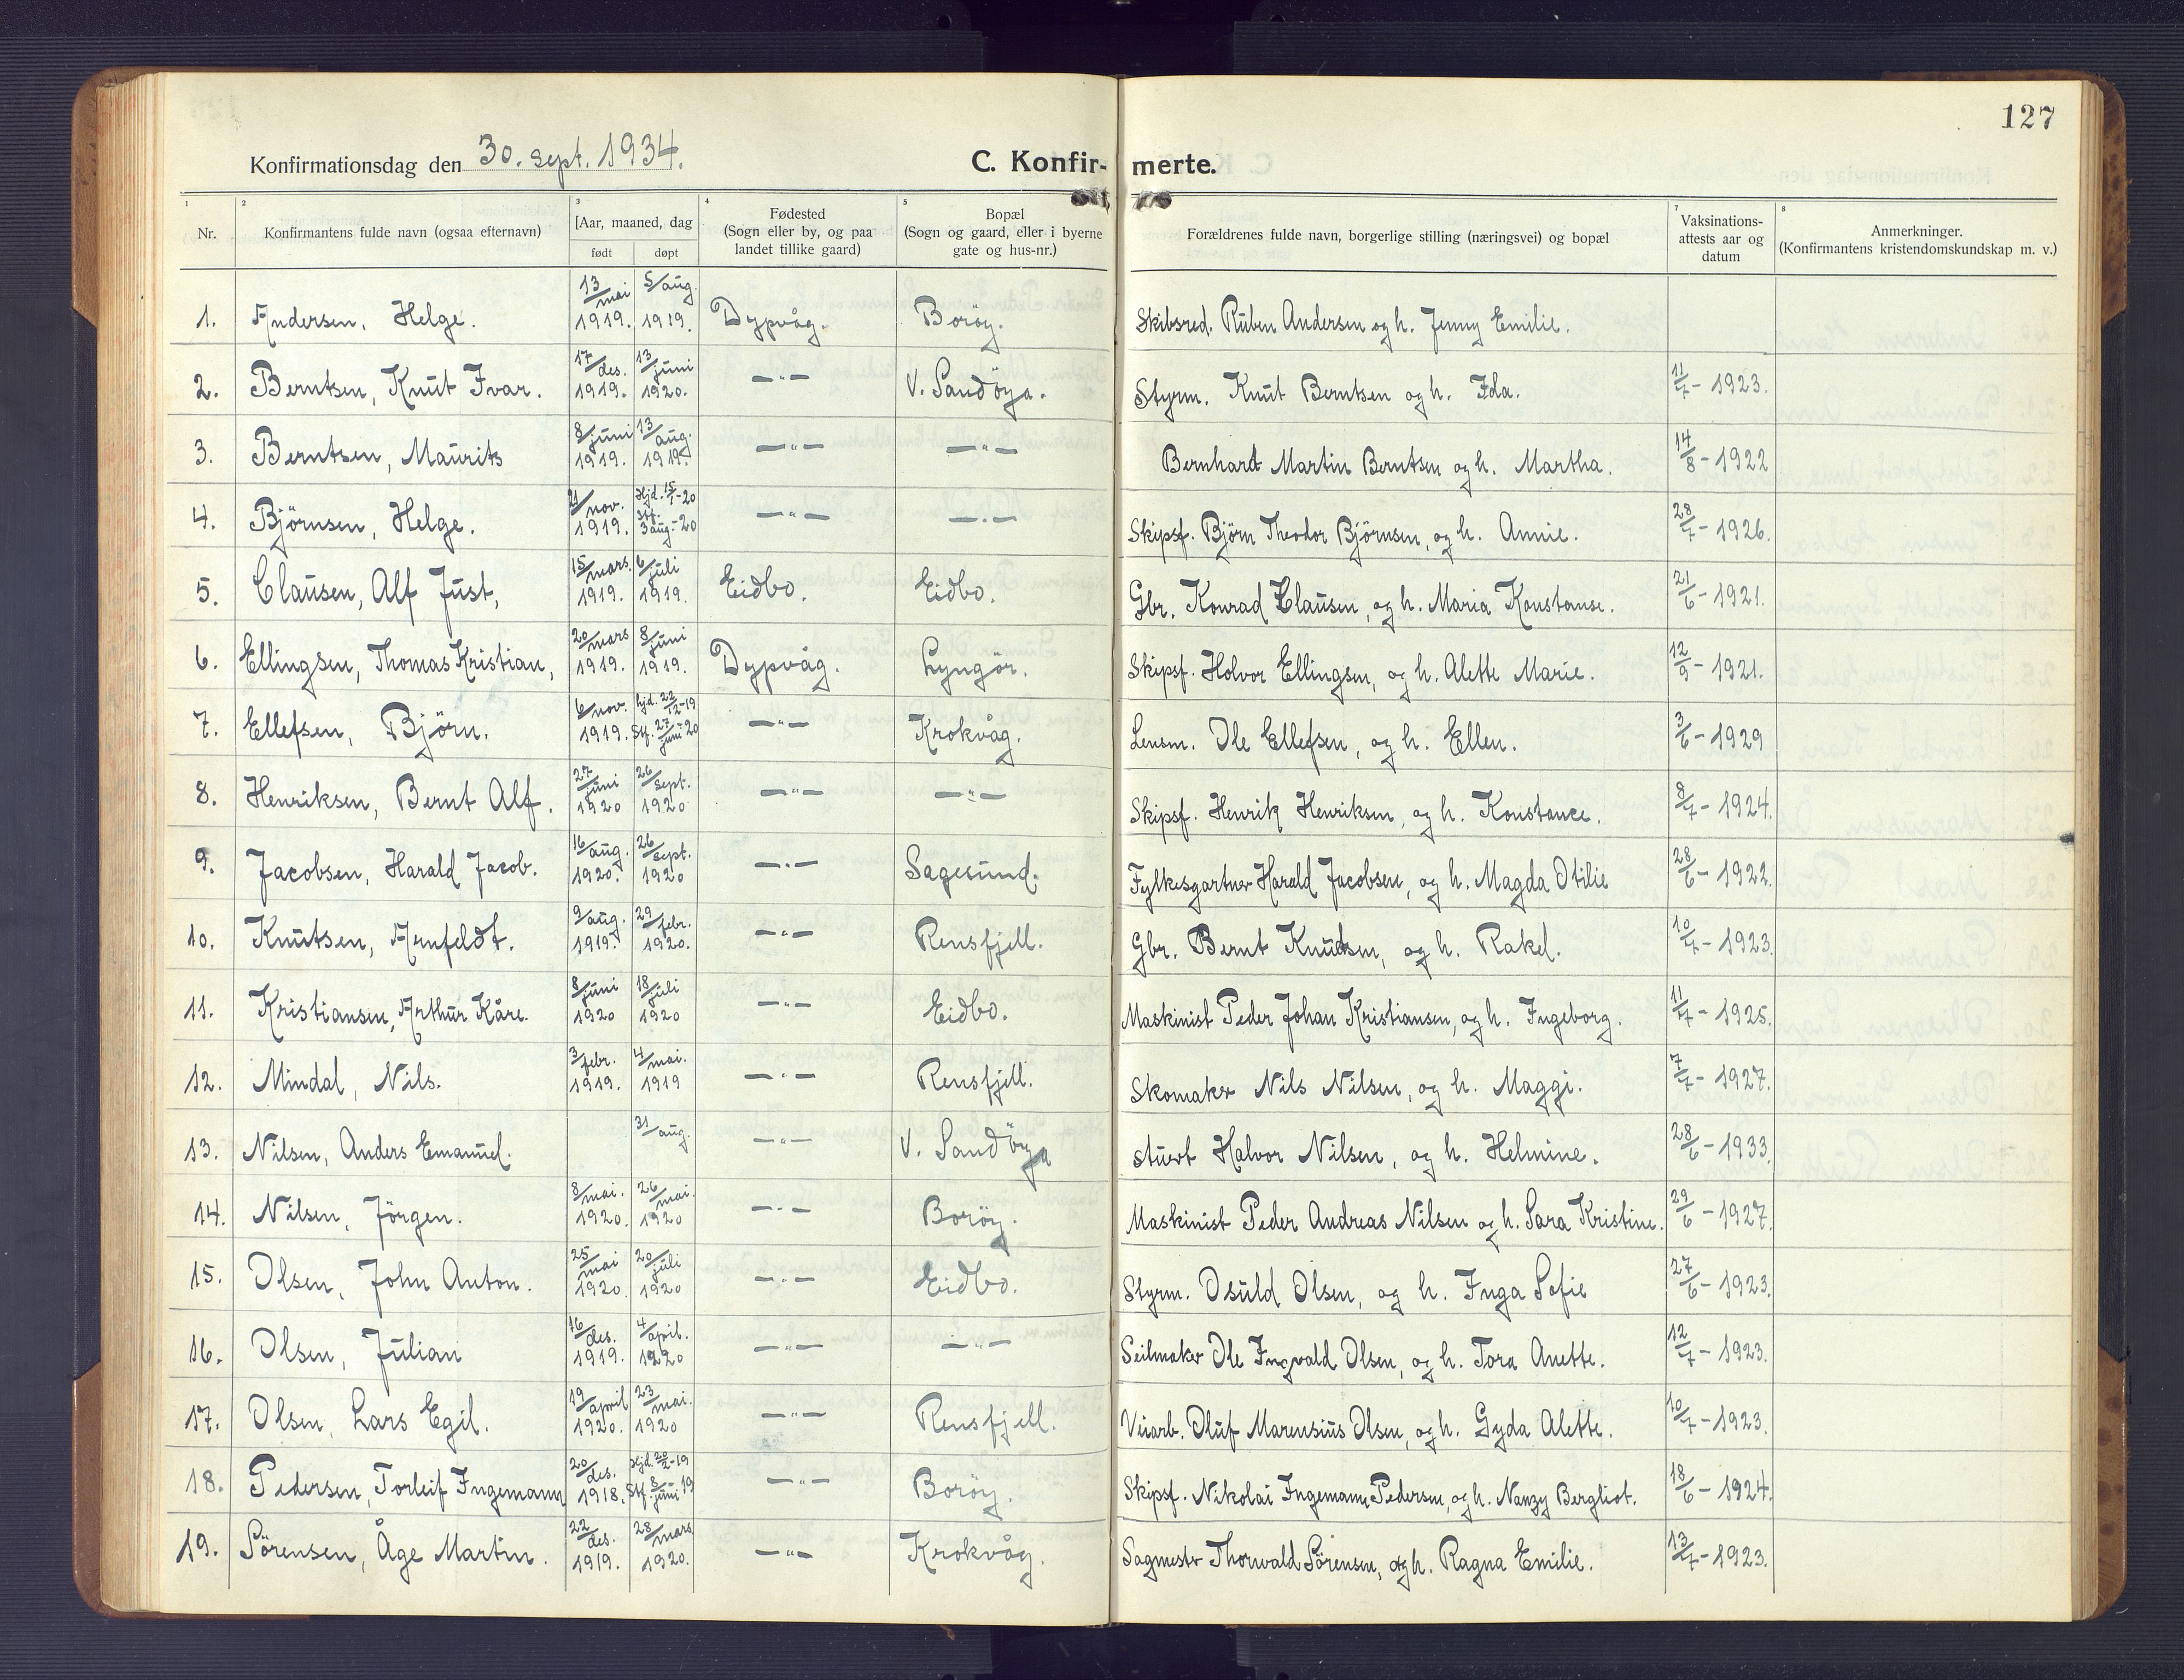 127
Konfirmationsdag den 30. sept. 1934.
C. Konfirmerte.
1 Nr.
2 Konfirmantens fulde navn (ogsaa efternavn)
3 [Aar, maaned, dag
født døpt
4 Fødested (Sogn eller by, og paa landet tillike gaard)
5 Bopæl (Sogn og gaard, eller i byerne gate og hus-nr.)
Forældrenes fulde navn, borgerlige stilling (næringsvei) og bopæl
7 Vaksinations-attests aar og datum
8 Anmerkninger. (Konfirmantens kristendomskundskap m. v.)
1. Andersen, Helge. 13/mai 1919. 5/aug. 1919. Dypvåg. Borøy. Skibsred. Ruben Andersen og h. Jenny Emilie.
2. Berntsen, Knut Ivar. 17/des. 1919. 13/juni 1920. —"— V. Sandöya. Styrm. Knut Berntsen og h. Ida. 11/7 - 1923.
3. Berntsen, Maurits 8/juni 1919. 13/aug. 1919. —"— —"— Bernhard Martin Berntsen og h. Martha. 14/8 - 1922
4. Björnsen, Helge. 21/nov. 1919. Hjd. 15/1-20 Stf. 3 aug.-20 —"— —"— Skipsf. Björn Theodor Björnsen, og h. Annie. 28/7 - 1926.
5. Clausen, Alf Just, 15/mars. 1919. 6/juli 1919. Eidbo. Eidbo. Gbr. Konrad Clausen, og h. Maria Konstanse. 21/6 - 1921.
6. Ellingsen, Thomas Kristian, 20/mars 1919. 8/juni 1919. Dypvåg. Lyngör. Skipsf. Holvor Ellingsen, og h. Alette Marie. 12/9 - 1921.
7. Ellefsen, Björn. 6/nov. 1919. hjd. 22/12-19 Stf. 27/juni-20 —"— Krokvåg. Lensm. Ole Ellefsen, og h. Ellen. 3/6 - 1929
8. Henriksen, Bernt Alf. 27/juni 1920 26/sept. 1920 —"— —"— Skipsf. Henrik Henriksen, og h. Konstance. 8/7 - 1924.
9. Jacobsen, Harald Jacob. 16/aug. 1920. 26/sept. 1920 —"— Sagesund. Fylkesgartner Harald Jacobsen, og h. Magda Otilie 28/6 - 1922.
10. Knutsen, Arnfeldt. 9/aug. 1919. 29/febr. 1920. —"— Rensfjell. Gbr. Bernt Knudsen, og h. Rakel. 10/7 - 1923.
11. Kristiansen, Arthur Kåre. 8/juni 1920 18/juli 1920 —"— Eidbo. Maskinist Peder Johan Kristiansen, og h. Ingeborg. 11/7 - 1925.
12. Mindal, Nils. 3/febr. 1919. 4/mai. 1919 —"— Rensfjell. Skomaker Nils Nilsen, og h. Maggi. 7/7 - 1927.
13. Nilsen, Anders Emanuel. 31/aug. —"— V. Sandöya stuert Halvor Nilsen, og h. Helmine. 28/6 - 1933.
14. Nilsen, Jörgen. 8/mai. 1920. 26/mai. 1920 —"— Borøy. Maskinist Peder Andreas Nilsen og h. Sara Kristine. 29/6 - 1927.
15. Olsen, John Anton. 25/mai 1920. 20/juli 1920 —"— Eidbo. Styrm. Osuld Olsen, og h. Inga Sofie 27/6 - 1923.
16. Olsen, Julian 16/des. 1919. 4/april. 1920 —"— —"— Seilmaker Ole Ingvald Olsen, og h. Tora Anette. 12/7 - 1923.
17. Olsen, Lars Egil. 19/april 1920. 23/mai. 1920 —"— Rensfjell. Veiarb. Oluf Marensius Olsen, og h. Gyda Alette. 10/7 - 1923.
18. Pedersen, Torleif Ingemann 20/des. 1918. Hjd. 22/2-19 Stf. 8/juni 19 —"— Borøy. Skipsf. Nikolai Ingemann Pedersen, og h. Nanzy Bergliot. 18/6 - 1924.
19. Sörensen, Åge Martin. 22/des. 1919. 28/mars 1920. —"— Krokvåg. Sagmester Thorvald Sörensen, og h. Ragna Emilie. 13/7 - 1923.